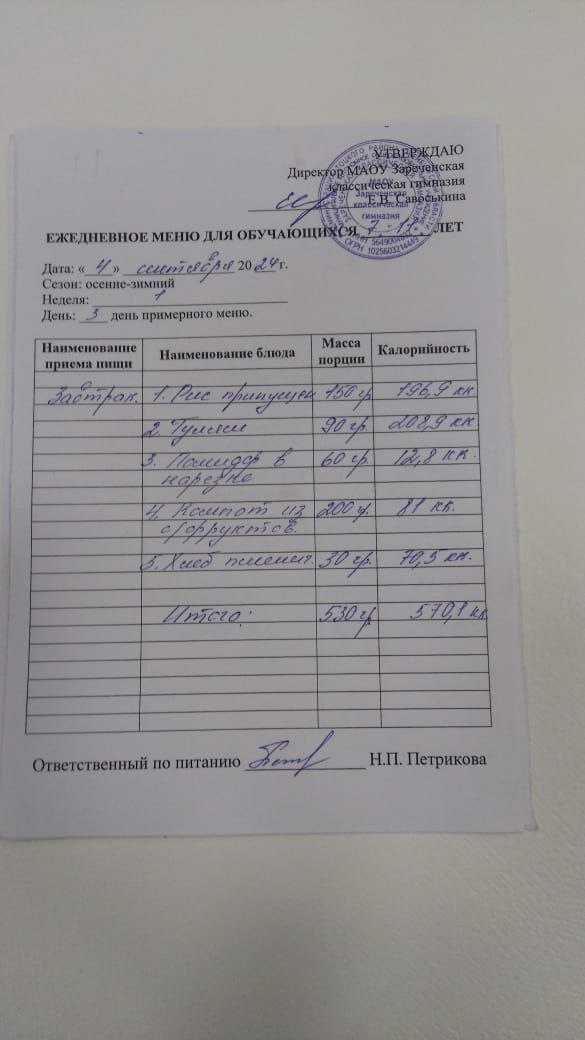 УТВЕРЖДАЮ
Директор МАОУ Зареченская
классическая гимназия
Е.В. Савоськина
МАОУ
Зареченская
классическая
гимназия
ИНН 5649004812
ОГРН 1025603214449
ЕЖЕДНЕВНОЕ МЕНЮ ДЛЯ ОБУЧАЮЩИХСЯ 7-11 ЛЕТ
Дата: « 4 » сентября 2024 г.
Сезон: осенне-зимний
Неделя: 1
День: 3 день примерного меню.
Наименование приема пищи Наименование блюда Масса порции Калорийность
Завтрак. 1. Рис припущен 150 гр 196,9 кк.
2. Гуляш 90 гр. 208,9 кк.
3. Помидор в 60 гр. 12,8 кк.
нарезке
4. Компот из 200 гр. 81 кк.
с/фруктов.
5. Хлеб пшенич. 30 гр. 70,5 кк.
Итого: 530 гр 570,1 кк
Ответственный по питанию Н.П. Петрикова